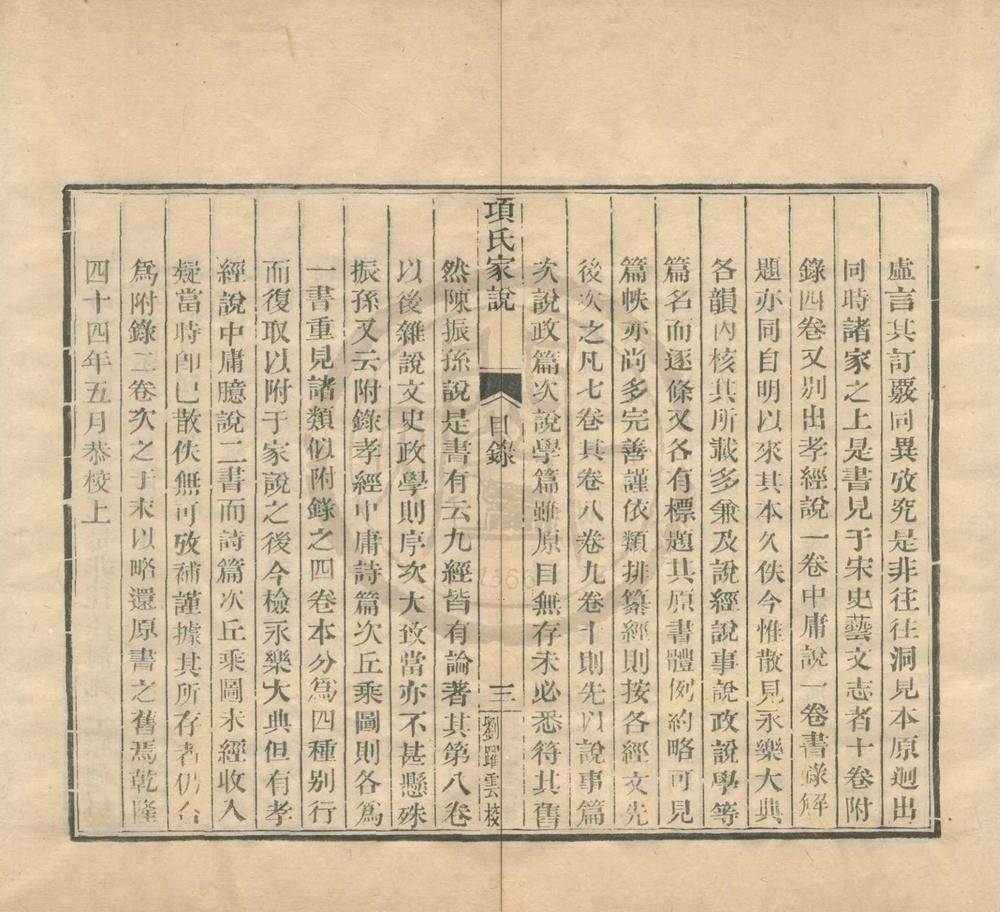 虛言其訂覈同異攷究是非往往洞見本原迥出
同時諸家之上是書見于宋史藝文志者十卷附
錄四卷又別出孝經說一卷中庸說一卷書錄解
題亦同自明以來其本久佚今惟散見永樂大典
各韻內核其所載多兼及說經說事說政說學等
篇名而逐條又各有標題其原書體例約略可見
篇帙亦尚多完善謹依類排纂經則按各經文先
後次之凡七卷其卷八卷九卷十則先以說事篇
次說政篇次說學篇雖原目無存未必悉符其舊
項氏家說
目錄
三
劉躍雲校
然陳振孫說是書有云九經皆有論著其第八卷
以後雜說文史政學則序次大致當亦不甚懸殊
振孫又云附錄孝經中庸詩篇次丘乘圖則各爲
一書重見諸類似附錄之四卷本分爲四種別行
而復取以附于家說之後今檢永樂大典但有孝
經說中庸臆說二書而詩篇次丘乘圖未經收入
疑當時卽已散佚無可攷補謹據其所存者仍合
爲附錄二卷次之于末以略還原書之舊焉乾隆
四十四年五月恭校上